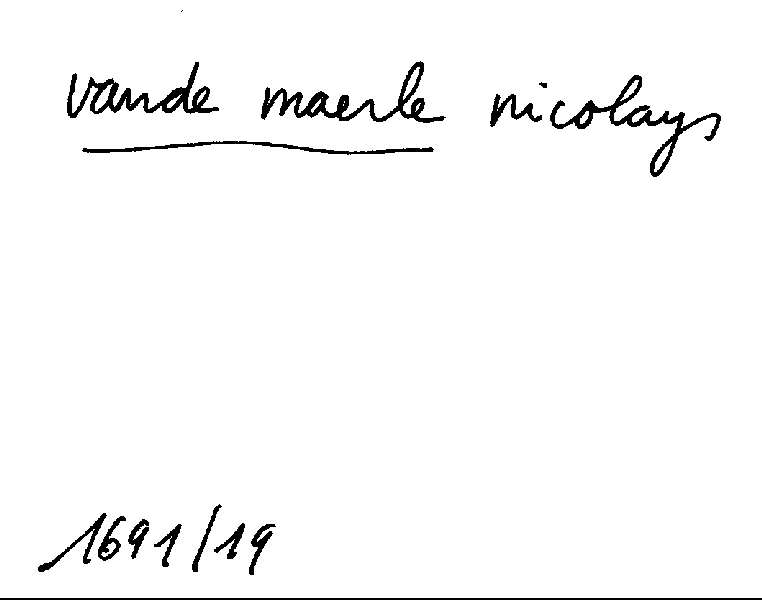 vande maerle nicolays
1691/19